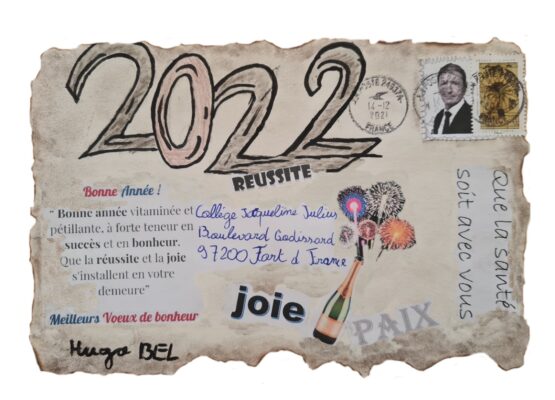 2022
14-12
2021
FRANCE
REUSSITE
Bonne Année !
“ Bonne année vitaminée et
pétillante, à forte teneur en
succès et en bonheur.
Que la réussite et la joie
s'installent en votre
demeure”
Meilleurs Voeux de bonheur
Hugo BEL
Collège Jacqueline Julius
Boulevard Godissard
97200 Fort d France
joie
PAIX
Que la santé
soit avec vous